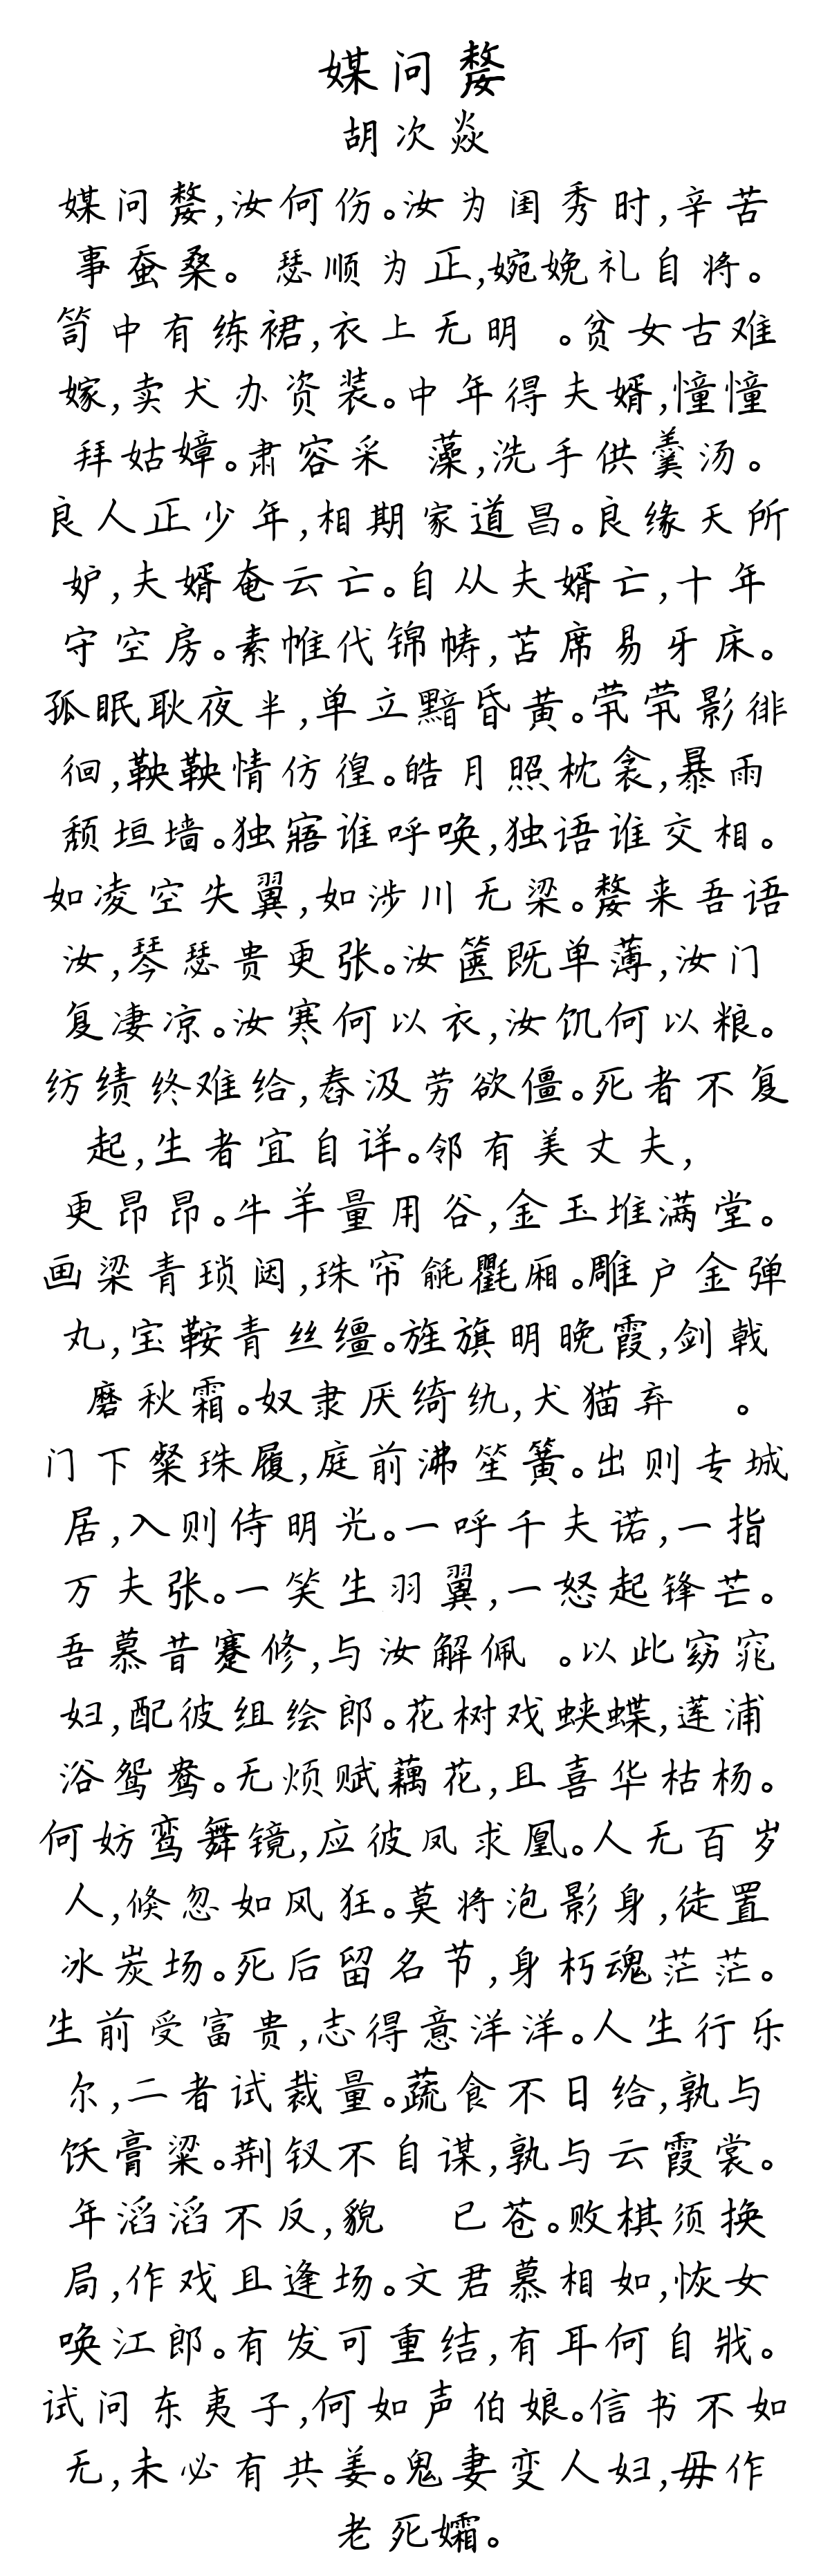 媒问嫠
胡次焱
媒问嫠,汝何伤。汝为闺秀时,辛苦
事蚕桑。 瑟顺为正,婉娩礼自将。
笥中有练裙,衣上无明 。贫女古难
嫁,卖犬办资装。中年得夫婿,憧憧
拜姑嫜。肃容采 藻,洗手供羹汤。
良人正少年,相期家道昌。良缘天所
妒,夫婿奄云亡。自从夫婿亡,十年
守空房。素帷代锦帱,苫席易牙床。
孤眠耿夜半,单立黯昏黄。茕茕影徘
徊,鞅鞅情仿徨。皓月照枕衾,暴雨
颓垣墙。独寤谁呼唤,独语谁交相。
如凌空失翼,如涉川无梁。嫠来吾语
汝,琴瑟贵更张。汝箧既单薄,汝门
复凄凉。汝寒何以衣,汝饥何以粮。
纺绩终难给,舂汲劳欲僵。死者不复
起,生者宜自详。邻有美丈夫,
更昂昂。牛羊量用谷,金玉堆满堂。
画梁青琐闼,珠帘毹氍厢。雕户金弹
丸,宝鞍青丝缰。旌旗明晚霞,剑戟
磨秋霜。奴隶厌绮纨,犬猫弃 。
门下粲珠履,庭前沸笙簧。出则专城
居,入则侍明光。一呼千夫诺,一指
万夫张。一笑生羽翼,一怒起锋芒。
吾慕昔蹇修,与汝解佩 。以此窈窕
妇,配彼组绘郎。花树戏蛱蝶,莲浦
浴鸳鸯。无烦赋藕花,且喜华枯杨。
何妨鸾舞镜,应彼凤求凰。人无百岁
人,倏忽如风狂。莫将泡影身,徒置
冰炭场。死后留名节,身朽魂茫茫。
生前受富贵,志得意洋洋。人生行乐
尔,二者试裁量。蔬食不日给,孰与
饫膏粱。荆钗不自谋,孰与云霞裳。
年滔滔不反,貌 已苍。败棋须换
局,作戏且逢场。文君慕相如,恢女
唤江郎。有发可重结,有耳何自戕。
试问东夷子,何如声伯娘。信书不如
无,未必有共姜。鬼妻变人妇,毋作
老死孀。